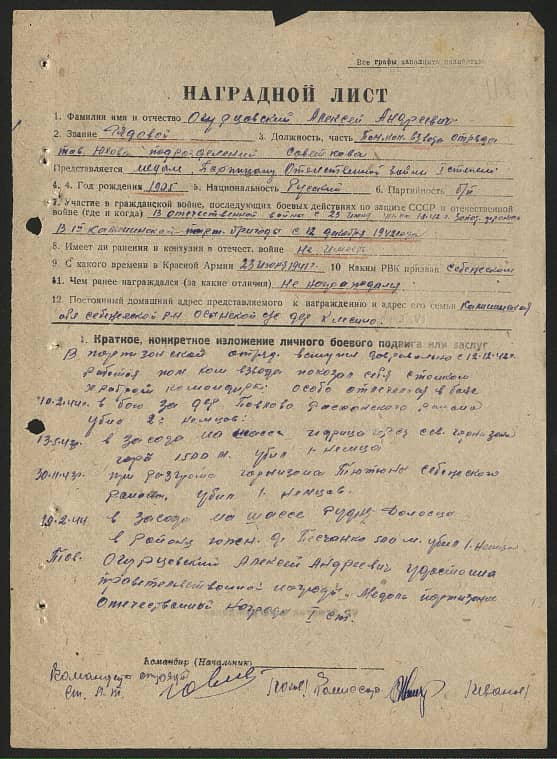 Все графы заполнять полностью
НАГРАДНОЙ ЛИСТ
1. Фамилия имя и отчество Огурцовский Алексей Андреевич
2. Звание Рядовой 3. Должность, часть Пом. ком. взвода отряда
тов. Юхова подразделения
Представляется медаль „Партизану Отечественной войны I степени
4. 4. Год рождения 1905 5. Национальность Русский 6. Партийность б/п
7. Участие в гражданской войне, последующих боевых действиях по защите СССР и отечественной
войне (где и когда) В отечественной войне с 23 июня
В 1й Калининской парт. бригады с 12 декабря 1942 года
8. Имеет ли ранения и контузия в отечест. войне Не имеет
9. С какого времени в Красной Армии 23 июня 1941 г. 10 Каким РВК призван Себежским
11. Чем ранее награждался (за какие отличия) Не награждался
12. Постоянный домашний адрес представляемого к награждению и адрес его семьи Калининская
обл себежский р-н Осынский с/с дер
1. Краткое, конкретное изложение личного боевого подвига или заслуг
В партизанский отряд вступил добровольно с 12.12.42 г.
Работая пом ком взвода показал себя стойким
храбрый командиром особо отличался в боях
10.2.44 г. в бою за дер Павлово района
убил 2х немцев.
13.5.43 г. в засаде на шоссе Идрица
1500 м. убил 1 немца
30.11.43 г. при разгроме гарнизона себежского
района, убил 1. немцев.
19.2.44 в засаде на шоссе Рудня Долосца
в районе д. Песчанка 500 м. убил 1. немца
Тов. Огурцовский Алексей Андреевич удостоина
правительственной награды „Медаль партизану
Отечественной Награда I ст.
Командир (Начальник)
Командир отряда
ст. л-т. /Юхов/ Комиссар /Иванов/